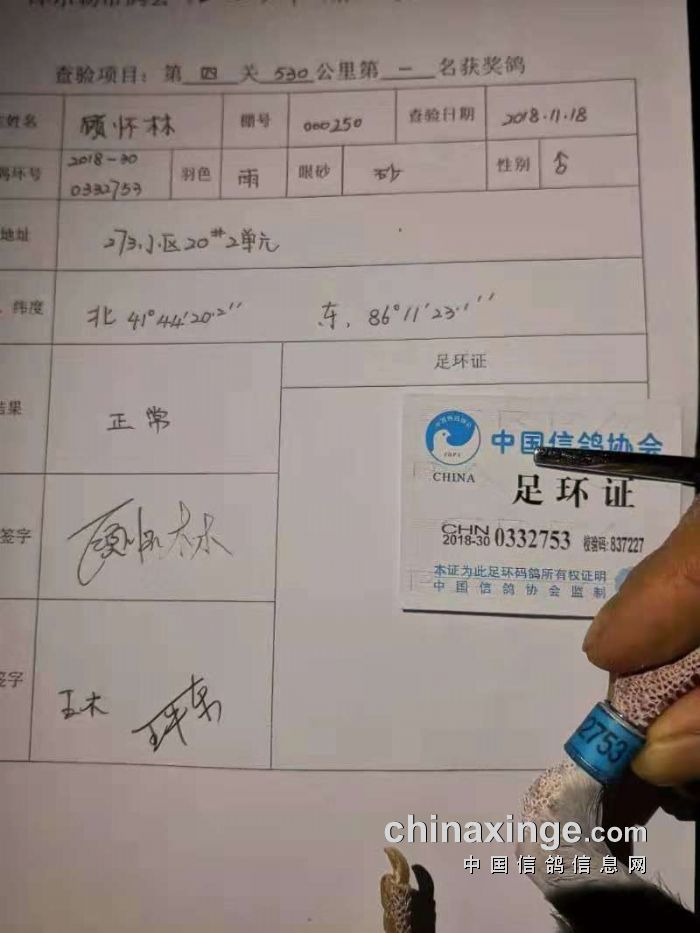 查验项目：第 四 关 530 公里第 一 名获奖鸽
姓名 顾怀林 棚号 000250 查验日期 2018.11.18
环号 2018-30 0332753 羽色 雨 眼砂 砂 性别 合
地址 273小区20#2单元
纬度 北 41°44′20.2″ 东. 86°11′23.1″
结果 正常
足环证
签字 顾怀林
签字 王木
中国信鸽协会
CHINA
足环证
CHN
2018-30 0332753 校验码: 837227
本证为此足环码鸽所有权证明
中国信鸽协会监制
2753
chinaxinge.com
中国信鸽信息网